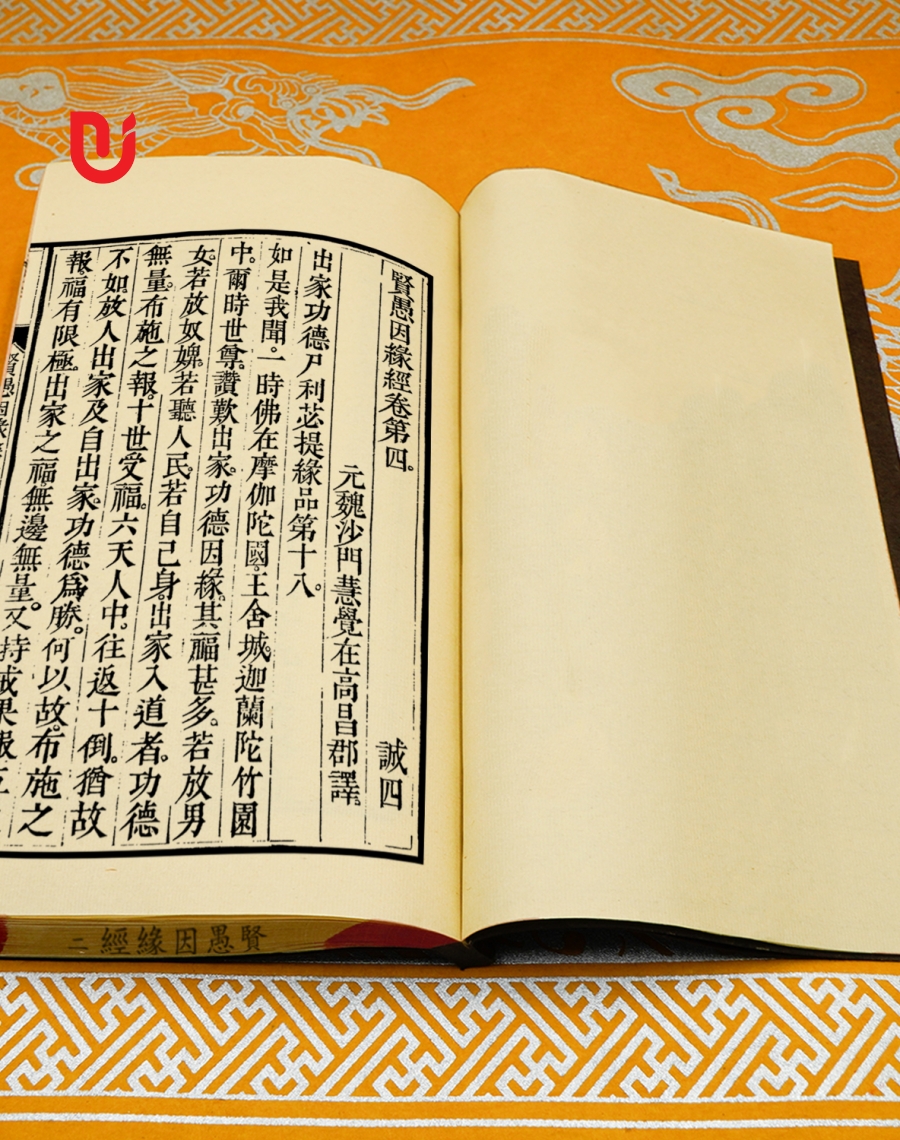 賢愚因緣經卷第四。 誠四
元魏沙門慧覺在高昌郡譯
出家功德尸利苾提緣品第十八。
如是我聞。一時佛在摩伽陀國。王舍城。迦蘭陀竹園
中。爾時世尊。讚歎出家。功德因緣。其福甚多。若放男
女。若放奴婢。若聽人民。若自己身。出家入道者。功德
無量。布施之報。十世受福。六天人中。往返十倒。猶故
不如放人出家及自出家。功德爲勝。何以故。布施之
報。福有限極。出家之福。無邊無量。又持戒果報
賢愚因緣經二